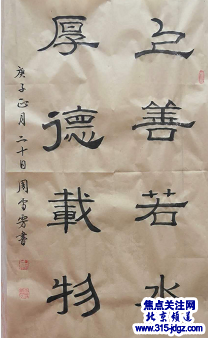 上善若水
厚德載物
庚子正月二十日周雪芳書
焦点关注网
北京频道
www.315-jdgz.com